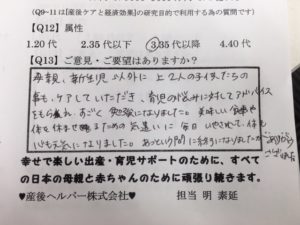 (Q9~11は[産後ケアと経済効果]の研究目的で利用する為の質問です)
【Q12】属性
1.20代 2.35代以下 3.35代以降 4.40代
【Q13】ご意見・ご要望はありますか?
母親、新生児以外に上2人の子供たちの
事も、ケアしていただき、育児の悩みに対してアドバイス
をもらえ、すごく勉強になりました。美味しい食事や
体を休ませるための気遣いに毎日いやされて、体も
心も元気になりました。あっという間に終りになりましたが
ありがとう
ございました
幸せで楽しい出産・育児サポートのために、すべて
の日本の母親と赤ちゃんのために頑張り続きます。
♥産後ヘルパー株式会社♥ 担当 明 素延